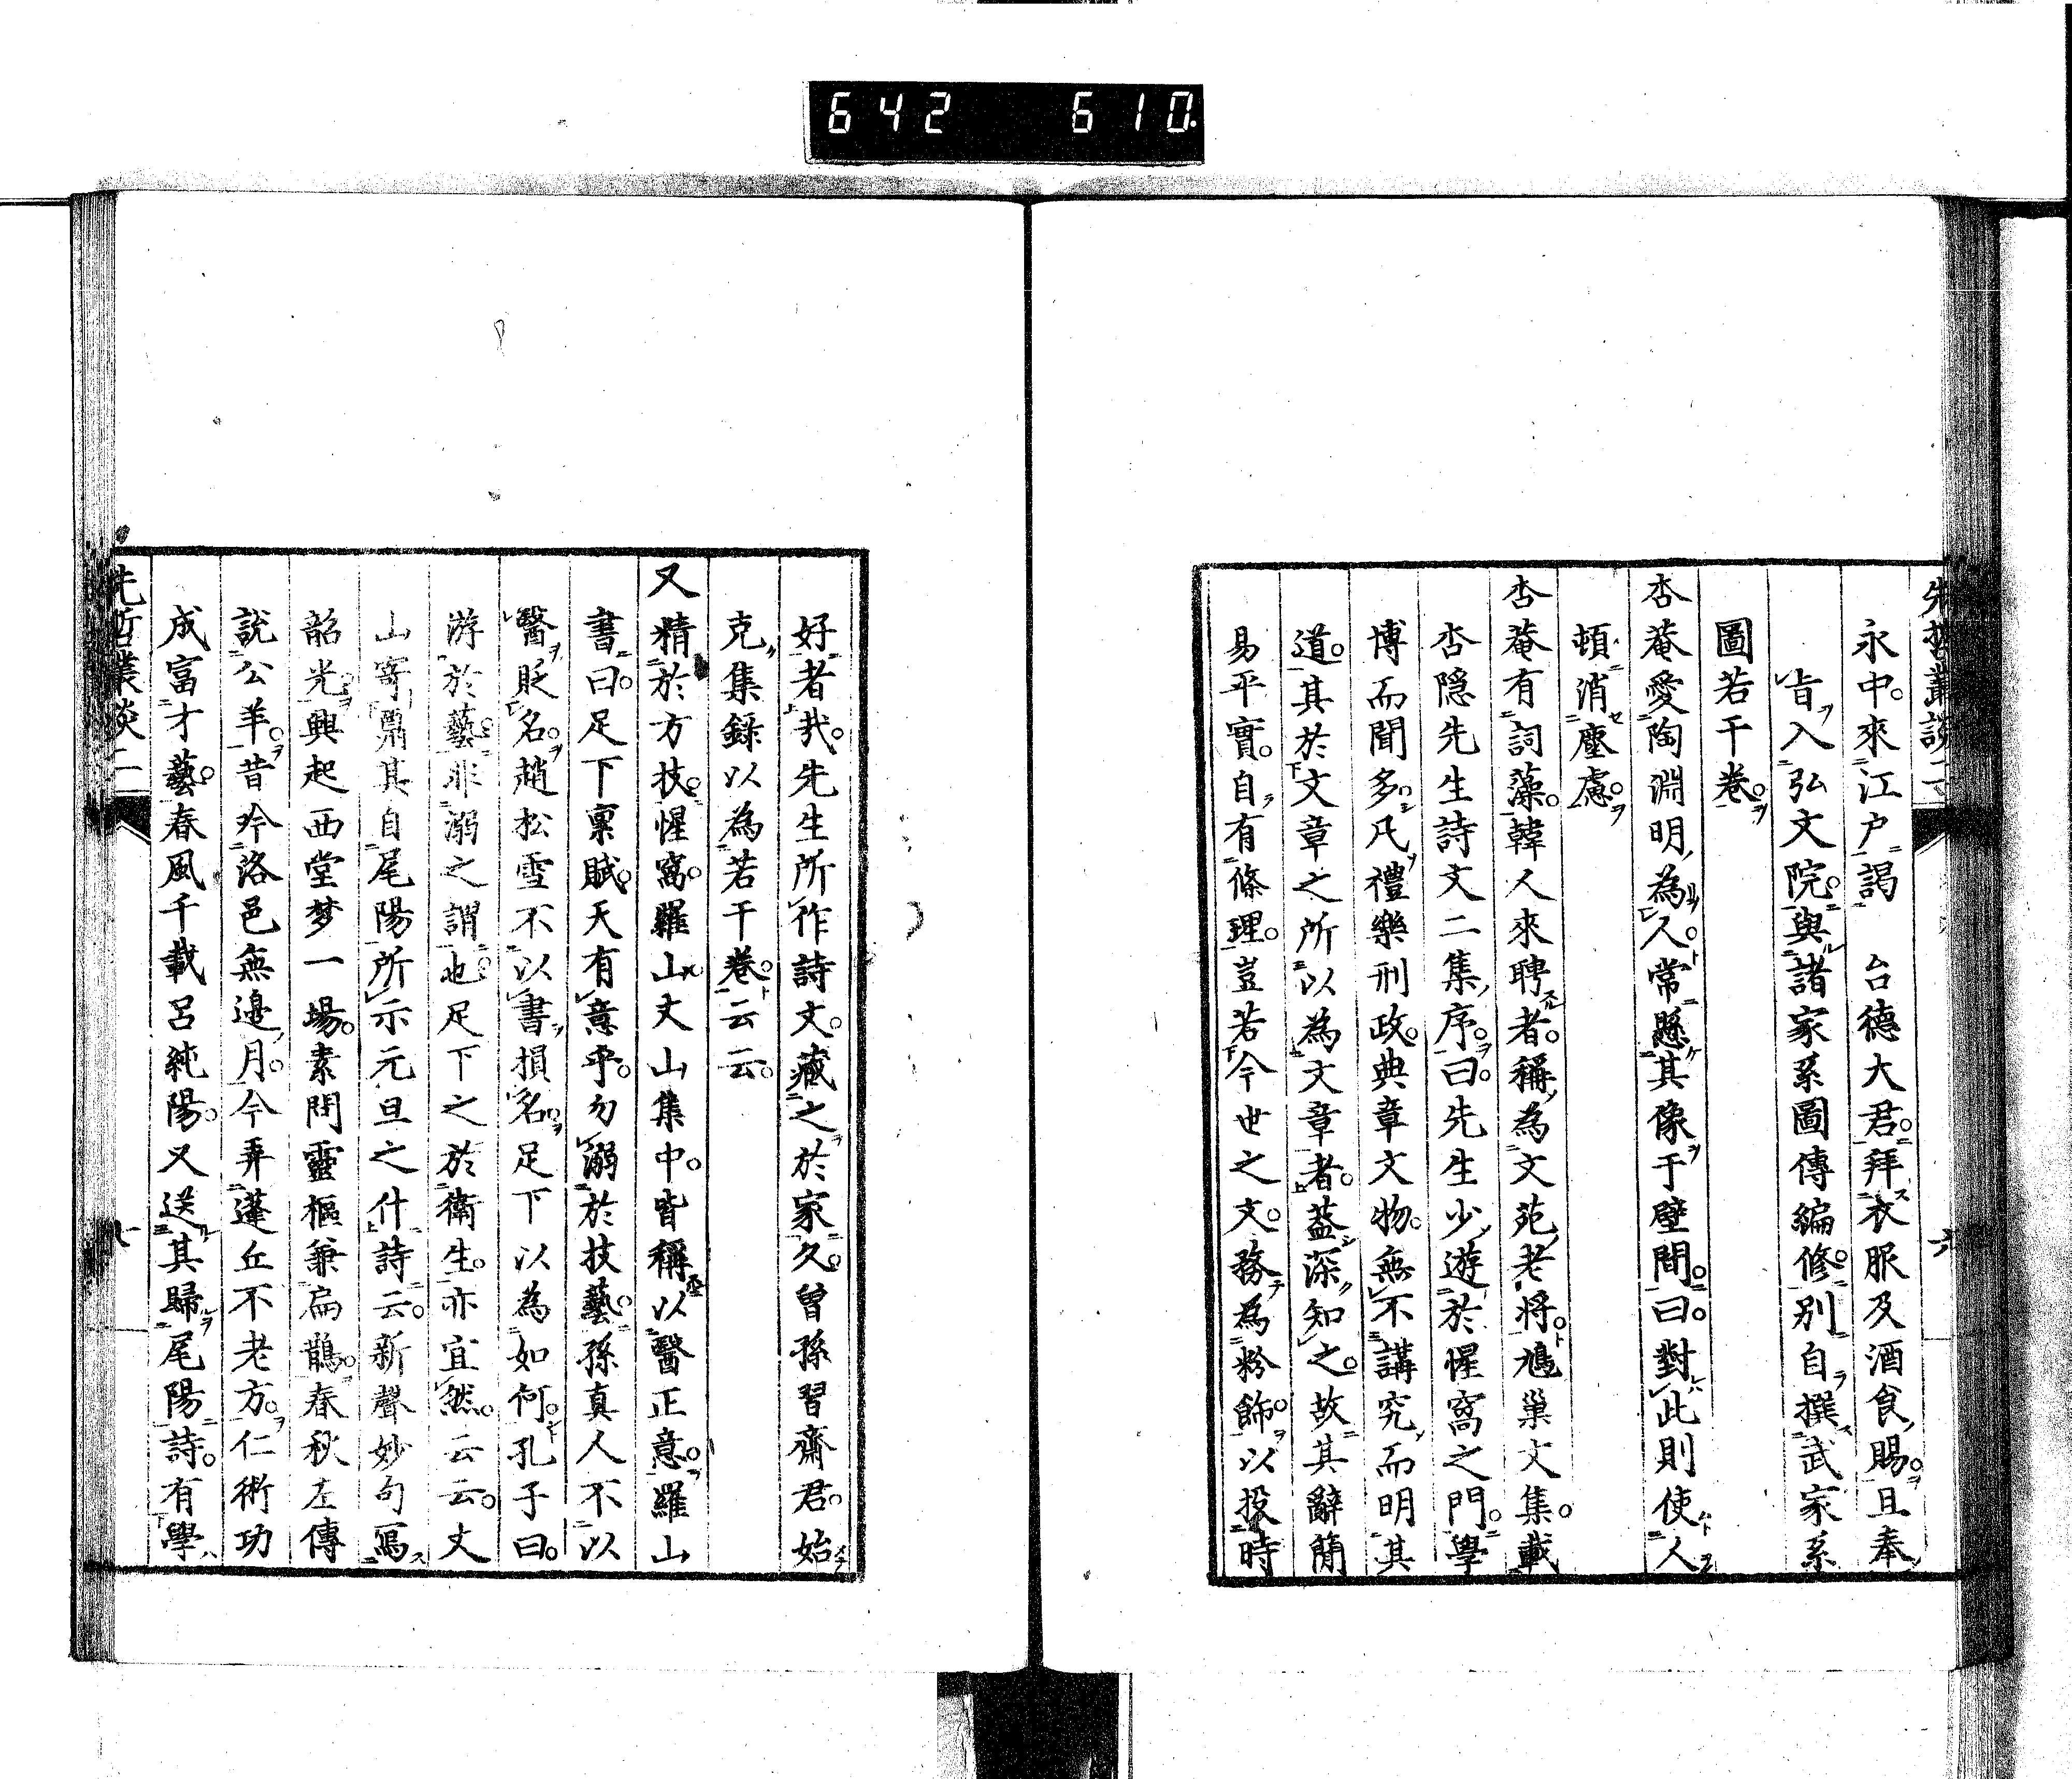 642 610
先哲叢談二
六
永中來江戶謁 台德大君拜衣服及酒食賜且奉
旨入弘文院與諸家系圖傳編修別自撰武家系
圖若干卷
杏菴愛陶淵明為人常懸其像于壁間曰對此則使人
頓消塵慮
杏菴有詞藻韓人來聘者稱為文苑老將鳩巢文集載
杏隱先生詩文二集序曰先生少遊於惺窩之門學
博而聞多凡禮樂刑政典章文物無不講究而明其
道其於文章之所以為文章者蓋深知之故其辭簡
易平實自有條理豈若今世之文務為粉飾以投時
好者哉先生所作詩文藏之於家久曾孫習齋君始
克集錄以為若干卷云云
又精於方技惺窩羅山丈山集中皆稱以醫正意羅山
書曰足下禀賦天有意乎勿溺於技藝孫真人不以
醫貶名趙松雪不以書損名足下以為如何孔子曰
游於藝非溺之謂也足下之於衛生亦宜然云云丈
山寄鼎其自尾陽所示元旦之什詩云新聲妙句寫
韶光興起西堂梦一場素問靈樞兼扁鵲春秋左傳
說公羊昔吟洛邑無邊月今弄蓬丘不老方仁術功
成富才藝春風千載呂純陽又送其歸尾陽詩有學
先哲叢談二